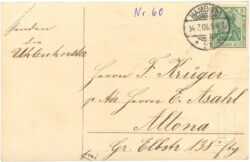 Nr. 60
Senden
die
Uhlenhorster
HAMBURG
14.7.06
Herrn F. Krüger
p. Adr. Herrn E. Asahl
Altona
Gr. Elbstr 138